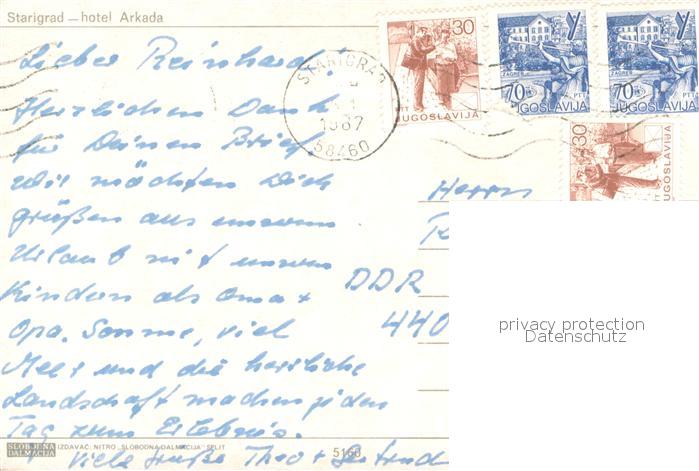 Starigrad — hotel Arkada
Lieber Reinhard!
Herzlichen Dank
für Deinen Brief.
Wir möchten Dich
grüßen aus unserem
Urlaub mit unseren
Kindern als Oma +
Opa. Sonne, viel
Meer und die herrliche
Landschaft machen jeden
Tag zum Erlebnis.
Viele Grüße Theo + Gertrud
SLOBODNA
DALMACIJA
IZDAVAČ: NITRO „SLOBODNA DALMACIJA" SPLIT
5160
STARIGRAD
1987
58460
30
JUGOSLAVIJA
ZAGREB
PTT
70
JUGOSLAVIJA
ZAGREB
PTT
70
JUGOSLAVIJA
30
JUGOSLAVIJA
Herrn
R
DDR
440
privacy protection
Datenschutz